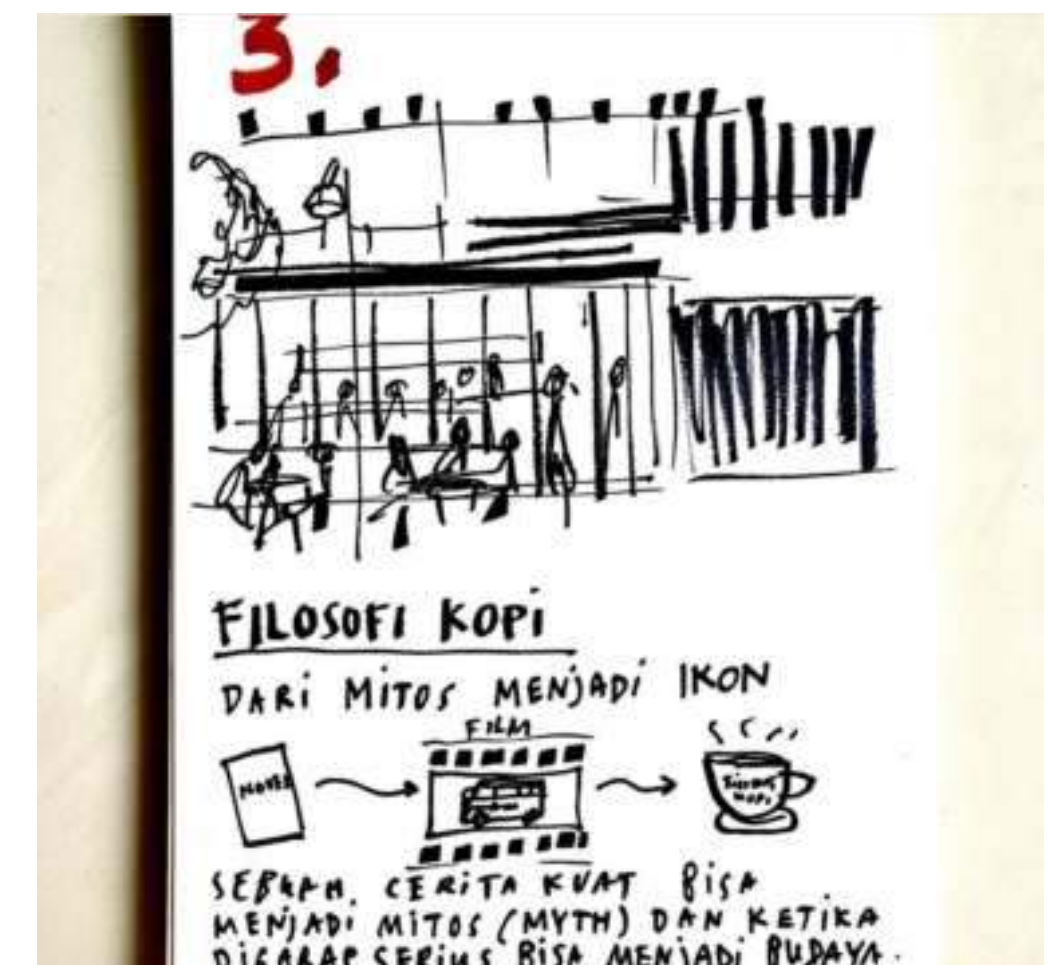 3.
FILOSOFI KOPI
DARI MITOS MENJADI IKON
FILM
NOVEL
FILOSOFI KOPI
SEBUAH CERITA KUAT BISA
MENJADI MITOS (MYTH) DAN KETIKA
DIGARAP SERIUS BISA MENJADI BUDAYA.